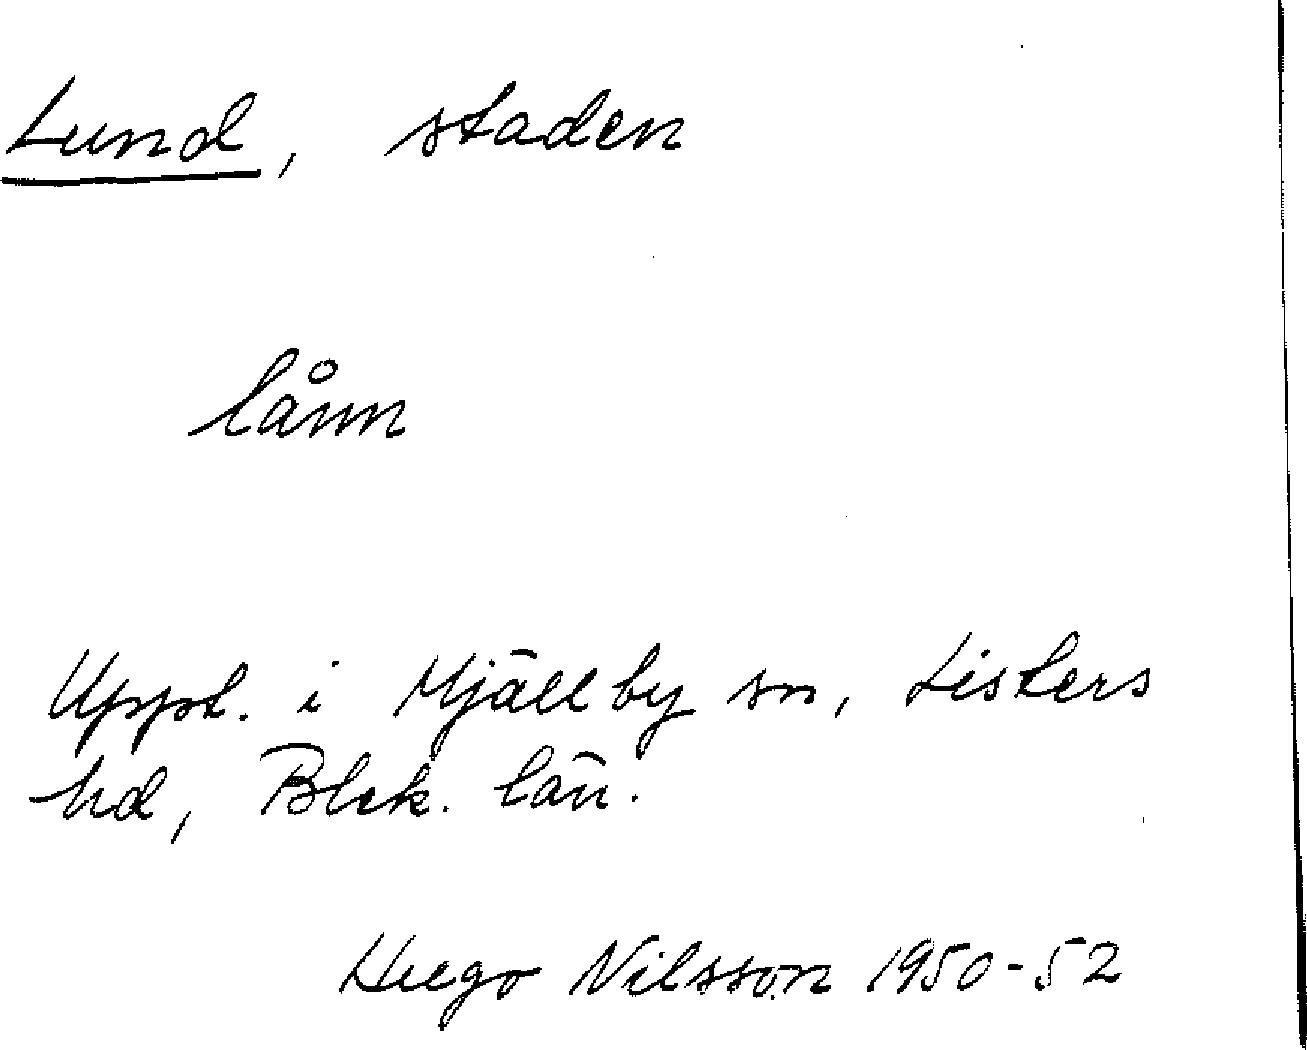 Lund, staden
lånn
Uppt. i Mjällby sn, Listers
hd, Blek. län.
Hugo Nilsson 1950-52